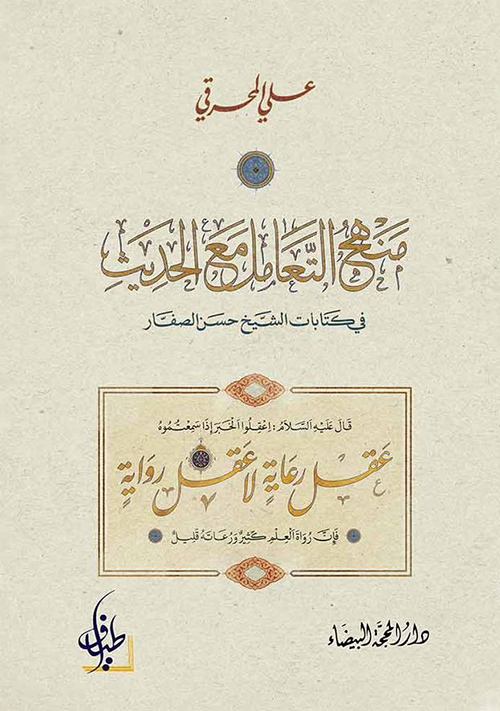 علي المحرقي
مَنهَجُ التَّعَامل مَعَ الحَديثِ
في كتابات الشيخ حسن الصفار
قَالَ عَلَيْهِ السَّلَامُ: اِعْقِلُوا الْخَبَرَ إِذَا سَمِعْتُمُوهُ
عَقلَ رِعَايةٍ لا عَقلَ روَايةٍ
فَإِنَّ رُوَاةَ الْعِلْمِ كَثِيرٌ وَرُعَاتَهُ قَلِيلٌ
دار المحجة البيضاء